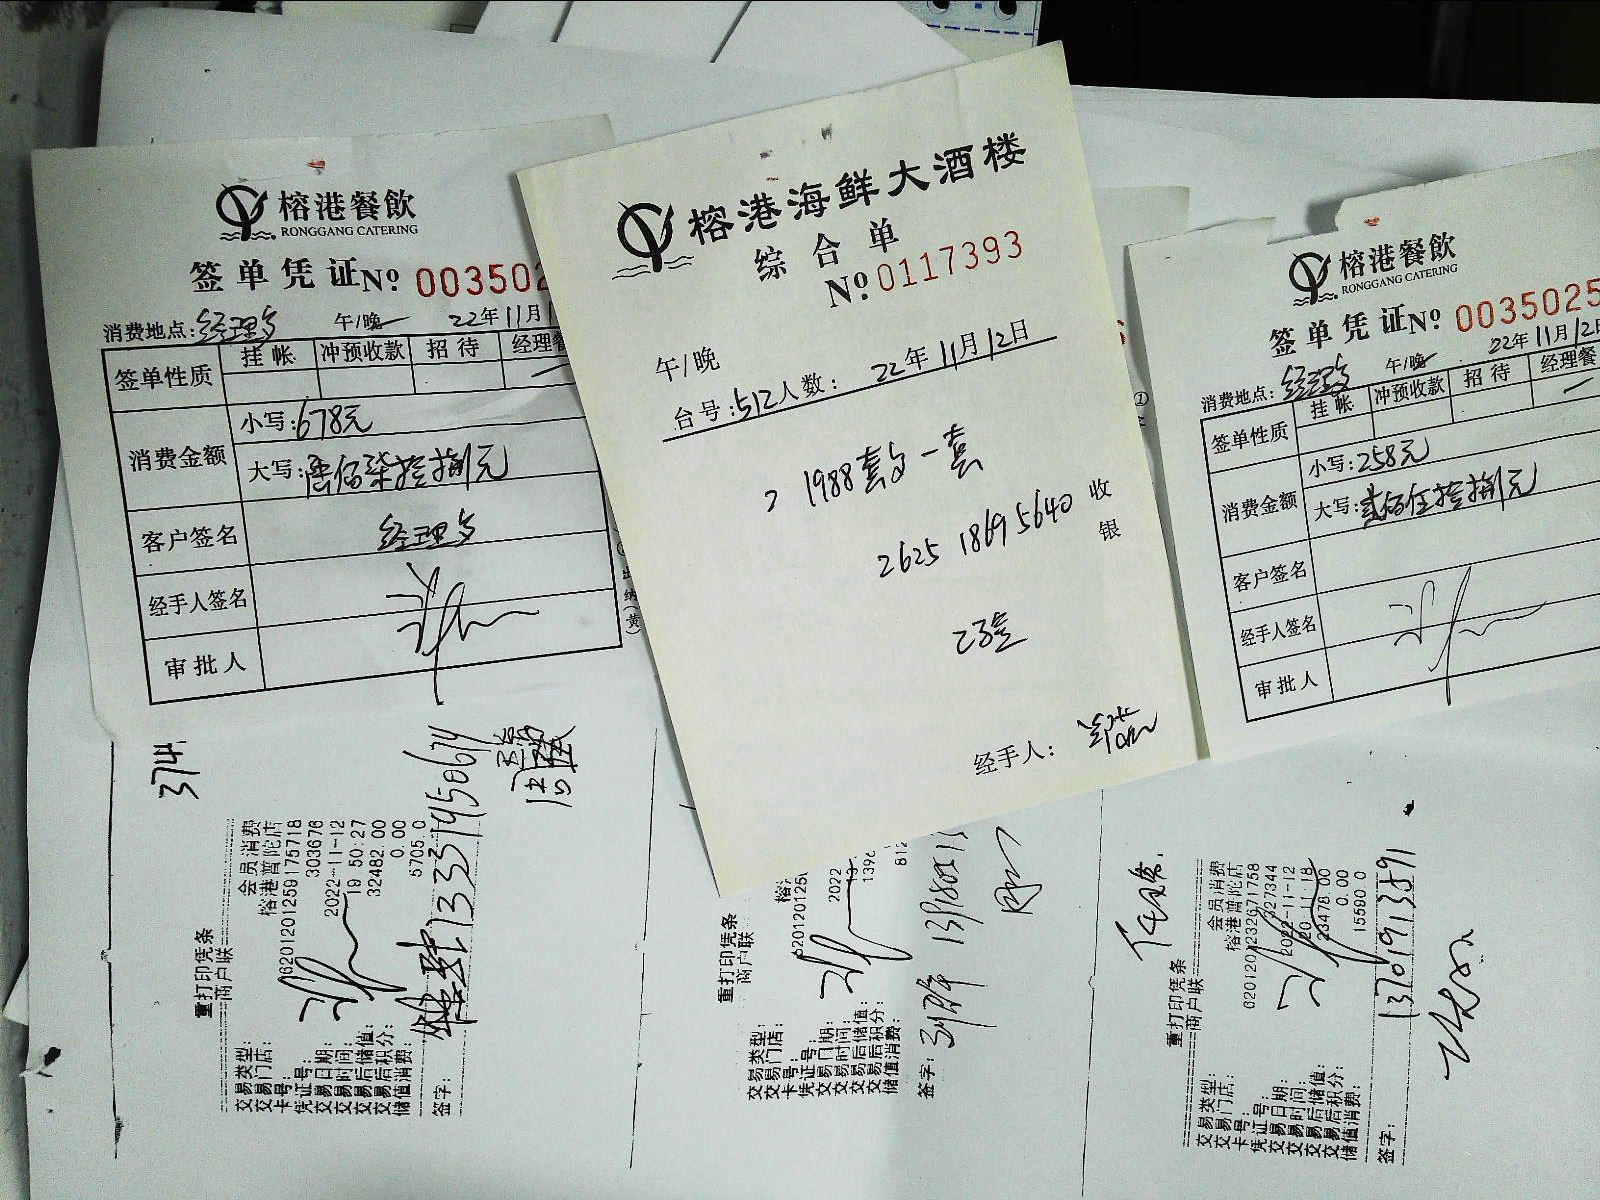 榕港餐飲
RONGGANG CATERING
签单凭证No. 003502
消费地点:经理多 午/晚 22年11月1
签单性质 挂帐 冲预收款 招待 经理餐
消费金额 小写:678元
大写:陆佰柒拾捌元
客户签名 经理多
经手人签名
审批人
纳(黄)
榕港海鲜大酒楼
综合单
No.0117393
午/晚
台号:512人数: 22年11月12日
1988套 一套
2625 1869 5640 收银
经手人:
榕港餐飲
RONGGANG CATERING
签单凭证No. 0035025
消费地点: 午/晚 22年11月12日
签单性质 挂帐 冲预收款 招待 经理餐
消费金额 小写:258元
大写:贰佰伍拾捌元
客户签名
经手人签名
审批人
374
重打印凭条
商户联
交易类型: 会员消费
交易门店: 榕港普陀店
卡号: 6201201259175718
凭证号: 303676
交易日期: 2022-11-12
交易时间: 19:50:27
交易后储值: 32482.00
交易后积分: 0.00
储值消费: 5705.0
签字: 13371950674
重打印凭条
商户联
交易类型:
交易门店: 榕
卡号: 620120125
凭证号:
交易日期: 2022
交易时间: 13
交易后储值: 1396
交易后积分:
储值消费: 812
签字:
重打印凭条
商户联
交易类型: 会员消费
交易门店: 榕港普陀店
卡号: 6201201232671758
凭证号: 327344
交易日期: 2022-11-12
交易时间: 20:11:18
交易后储值: 23478.00
交易后积分: 0.00
储值消费: 15590.0
签字: 13701913591